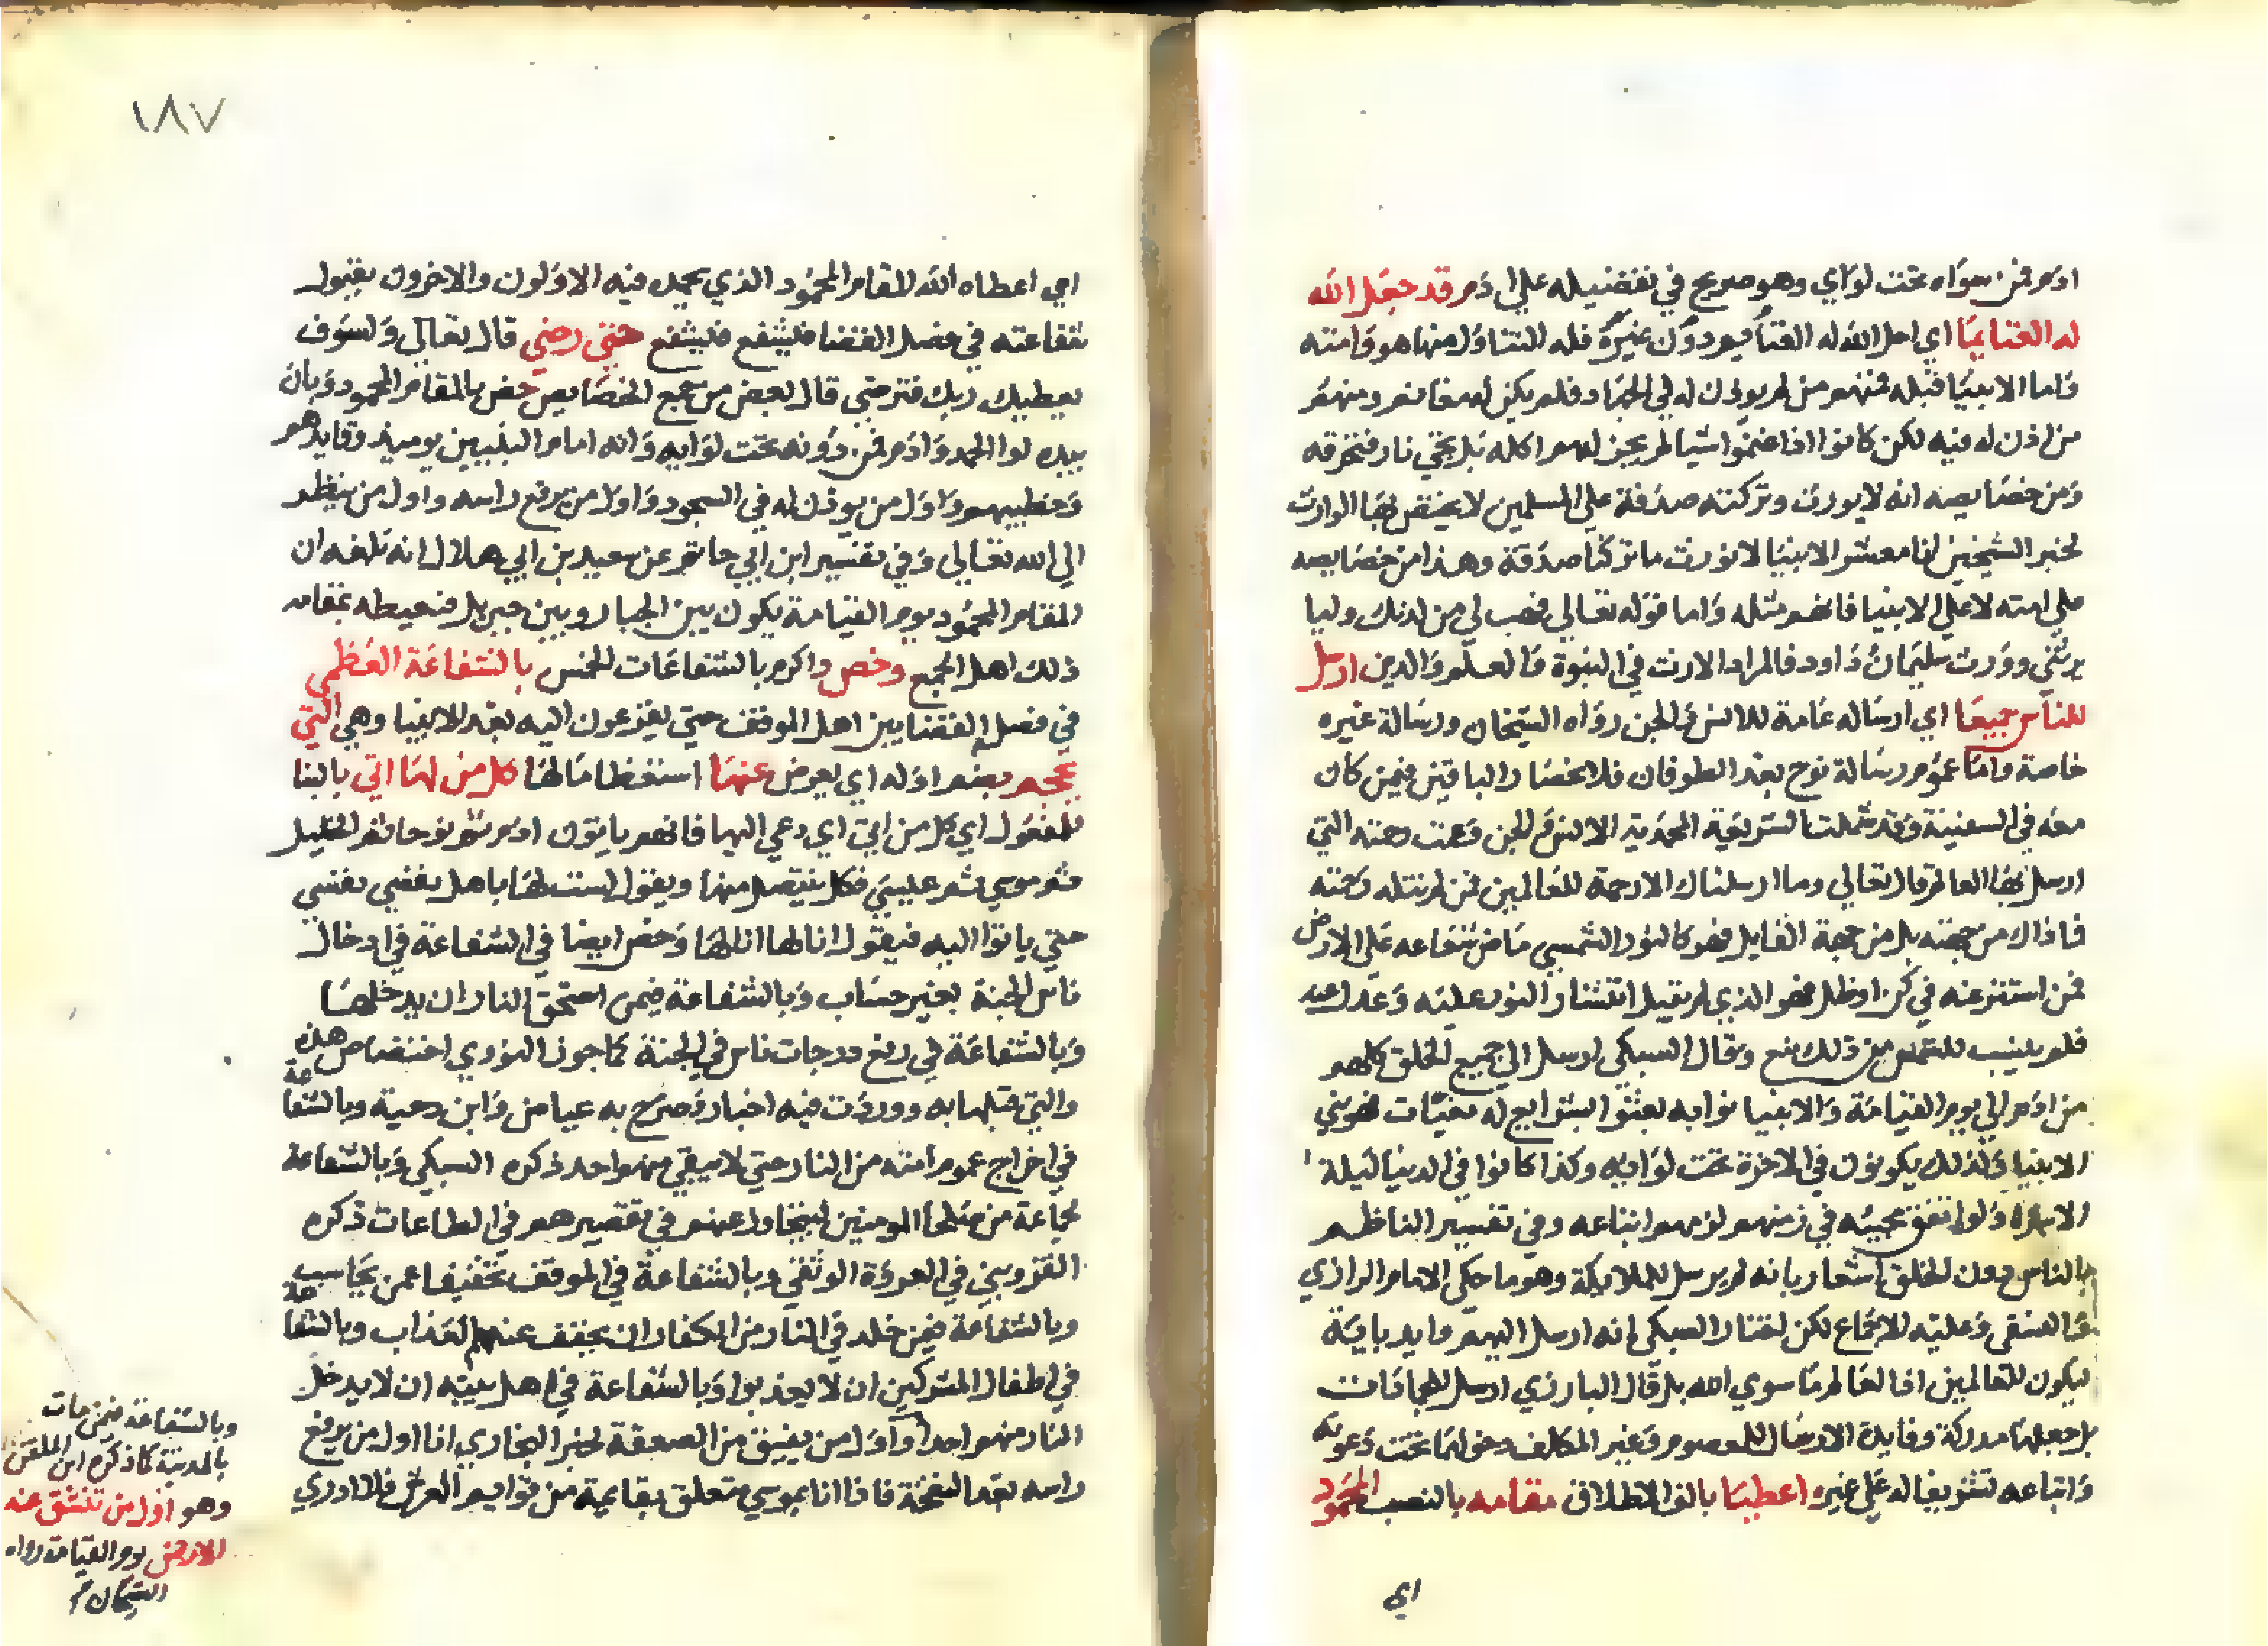 ادم فمن سواه تحت لواي وهو صريح في تفضيله علي ادم قد جعل الله
له الغنايما اي احل الله له الغنايم دون غيره فله التناول منها هو وامته
واما الانبيا قبله فمنهم من لم يوذن له في الجهاد فلم يكن لهم مغانم ومنهم
من اذن له فيه لكن كانوا اذا غنموا شيا لم يجز لهم اكله بل تجي نار فتحرقه
ومن خصايصه انه لا يورث وتركته صدقة علي المسلمين لا يختص بها الوارث
لخبر الشيخين انا معشر الانبيا لا نورث ما تركنا صدقة وهذا من خصايصه
علي امته لا علي الانبيا فانهم مثله واما قوله تعالي فهب لي من لدنك وليا
يرثني وورث سليمان داود فالمراد الارث في النبوة والعلم والدين ارسل
للناس جميعا اي ارساله عامة للانس والجن رواه الشيخان ورسالة غيره
خاصة واما عموم رسالة نوح بعد الطوفان فلانحصار الباقين فيمن كان
معه في السفينة وقد شملت الشريعة المحمدية الانس والجن وعمت رحمته التي
ارسل بها العالم قال تعالي وما ارسلناك الا رحمة للعالمين فمن لم تنله رحمته
فما ذاك من جهته بل من جهة القابل فهو كالنور الشمسي فاض شعاعه علي الارض
فمن استتر عنه في كن او ظل فهو الذي لم يقبل انتشار النور عليه وعدل عنه
فلم ينسب للشمس من ذلك منع وقال السبكي ارسل الي جميع الخلق كلهم
من ادم الي يوم القيامة والانبيا نوابه بعثوا بشرايع له مغيات فهو نبي
الانبيا ولذلك يكونون في الاخرة تحت لوايه وكذا كانوا في الدنيا ليلة
الاسرا ولو اتفق مجيه في زمنهم لزمهم اتباعه وفي تفسير الناظم
بالناس دون الخلق اشعار بانه لم يرسل للملايكة وهو ما حكي الامام الرازي
والنسفي وعليه الاجماع لكن اختار السبكي انه ارسل اليهم وايد باية
ليكون للعالمين اذ العالم ما سوي الله بل قال البارزي ارسل للجمادات
بل جعلها مدركة وفايدة الارسال للمعصوم وغير المكلف دخولها تحت دعوته
واتباعه تشريفا له علي غيره اعطيا بالف الاطلاق مقامه بالنصب المحمود
اي
١٨٧
اي اعطاه الله المقام المحمود الذي يحمده فيه الاولون والاخرون بقبول
شفاعته في فصل القضا فليشفع فيشفع حتي رضي قال تعالي ولسوف
يعطيك ربك فترضي قال بعض من جمع الخصايص خص بالمقام المحمود وبان
بيده لوا الحمد وادم فمن دونه تحت لوايه وانه امام النبيين يوميذ وقايدهم
وخطيبهم واول من يوذن له في السجود واول من يرفع راسه واول من ينظر
الي الله تعالي وفي تفسير ابن ابي حاتم عن سعيد بن ابي هلال انه بلغه ان
المقام المحمود يوم القيامة يكون بين الجبار وبين جبريل فيغبطه بمقامه
ذلك اهل الجمع وخص واكرم بالشفاعات الخمس بالشفاعة العظمي
في فصل القضا بين اهل الموقف حتي يفزعون اليه بعد الانبيا وهي التي
يحجم بضم اوله اي يعرض عنها استعظاما لها كل من لها اتي بالبنا
للمفعول اي كل من اتي اي دعي اليها فانهم ياتون ادم ثم نوحا ثم الخليل
ثم موسي ثم عيسي فكل يتنصل منها ويقول لست لها باهل نفسي نفسي
حتي ياتوا اليه فيقول انا لها انا لها وخص ايضا في الشفاعة في ادخال
ناس الجنة بغير حساب وبالشفاعة فيمن استحق النار ان يدخلها
وبالشفاعة في رفع درجات ناس في الجنة كما جوز النووي اختصاص هذه
والتي قبلها به ووردت فيه اخبار وصرح به عياض وابن دحية وبالشفاعة
في اخراج عموم امته من النار حتي لا يبقي منهم احد ذكره السبكي وبالشفاعة
لجماعة من صلحا المومنين ليتجاوز عنهم في تقصيرهم في الطاعات ذكره
القزويني في العروة الوثقي وبالشفاعة في الموقف تخفيفا عمن يحاسب
وبالشفاعة فيمن خلد في النار من الكفار ان يخفف عنهم العذاب وبالشفاعة
في اطفال المشركين ان لا يعذبوا وبالشفاعة في اهل بيته ان لا يدخل
النار منهم احدا واول من يفيق من الصعقة لخبر البخاري انا اول من يرفع
راسه بعد النفخة فاذا انا بموسي متعلق بقايمة من قوايم العرش فلا ادري
وبالشفاعة فيمن مات
بالمدينة كما ذكره ابن الملقن
وهو اول من تنشق عنه
الارض يوم القيامة رواه
الشيخان